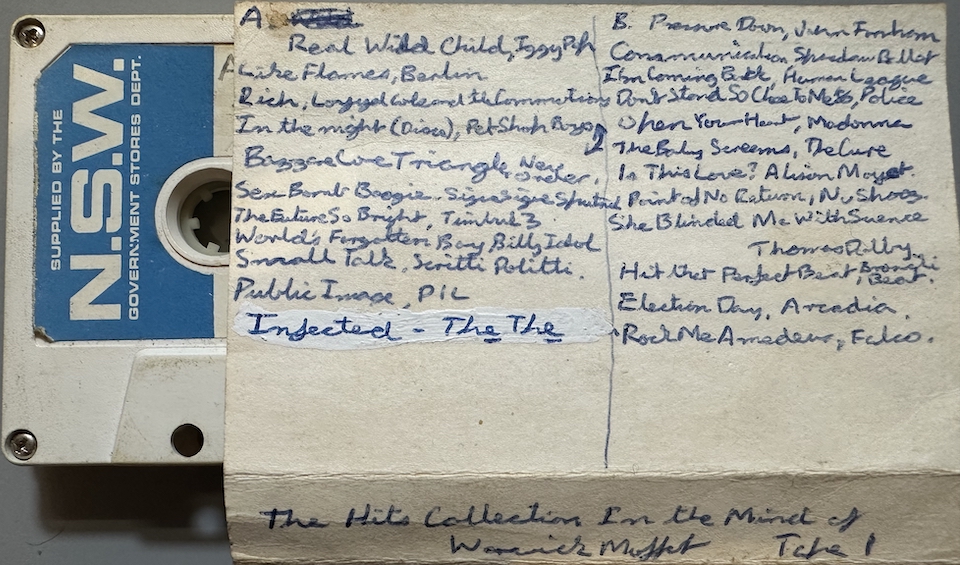 SUPPLIED BY THE
N.S.W.
GOVERNMENT STORES DEPT.
A
A
Real Wild Child, Iggy Pop
Like Flames, Berlin
Rich, Lloyd Cole and the Commotions
In the night (Disco), Pet Shop Boys
Bizzare Love Triangle, New Order,
Sex Bomb Boogie - Sigue Sigue Sputnik
The Future So Bright, Timbuk 3
World's Forgotten Boy, Billy Idol
Small Talk, Scritti Politti.
Public Image, PIL
Infected - The The
B. Pressure Down, John Farnham
Communication Spandau Ballet
I'm Coming Back, Human League
Don't Stand So Close To Me 86, Police
Open Your Heart, Madonna
The Baby Screams, The Cure
Is This Love? Alison Moyet.
Point of No Return, Nu Shooz.
She Blinded Me With Science
Thomas Dolby.
Hit that Perfect Beat, Bronski Beat.
Election Day, Arcadia.
Rock Me Amedeus, Falco.
The Hits Collection In the Mind of
Warwick Moffet Tape 1